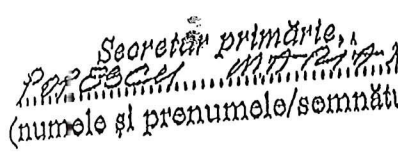 Secretar primărie,
POPESCU MARIA
(numele și prenumele/semnătu